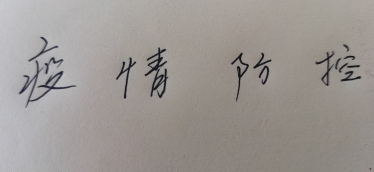 疫情防控